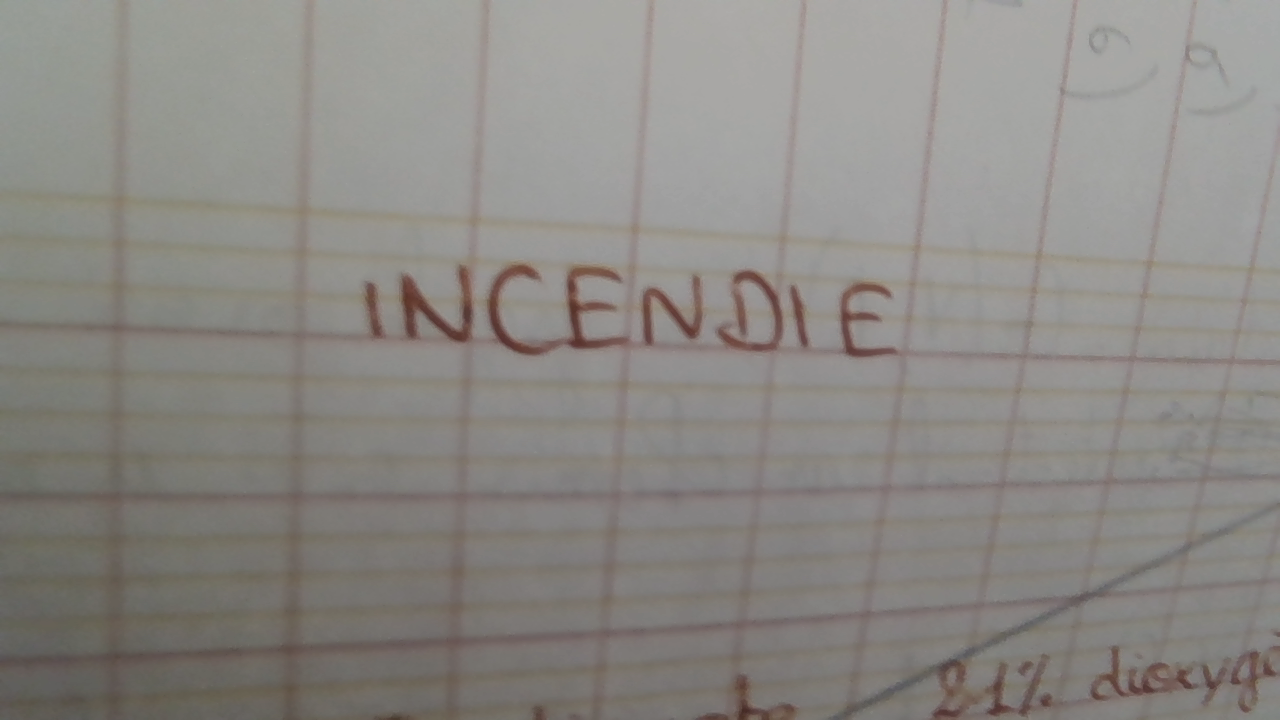 INCENDIE
21% dioxygè